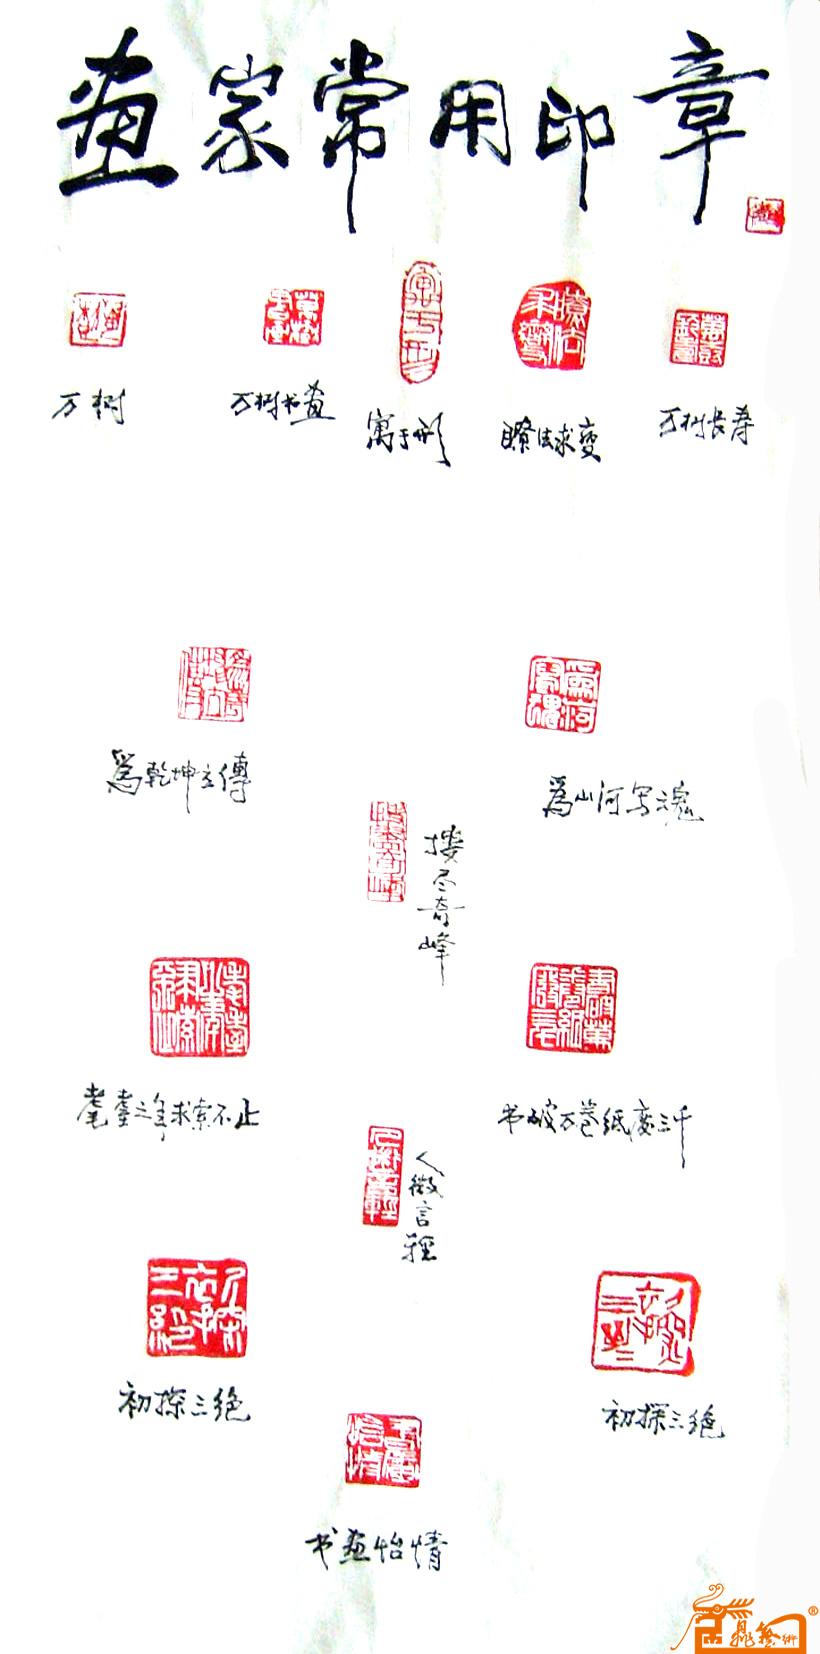 画家常用印章
万树
万树书画
寓于形
瞭法求变
万树长寿
為乾坤立傳
為山河写魂
搂尽奇峰
耄耋之年求索不止
书破万卷纸废三千
人微言轻
初探三绝
初探三绝
书画怡情